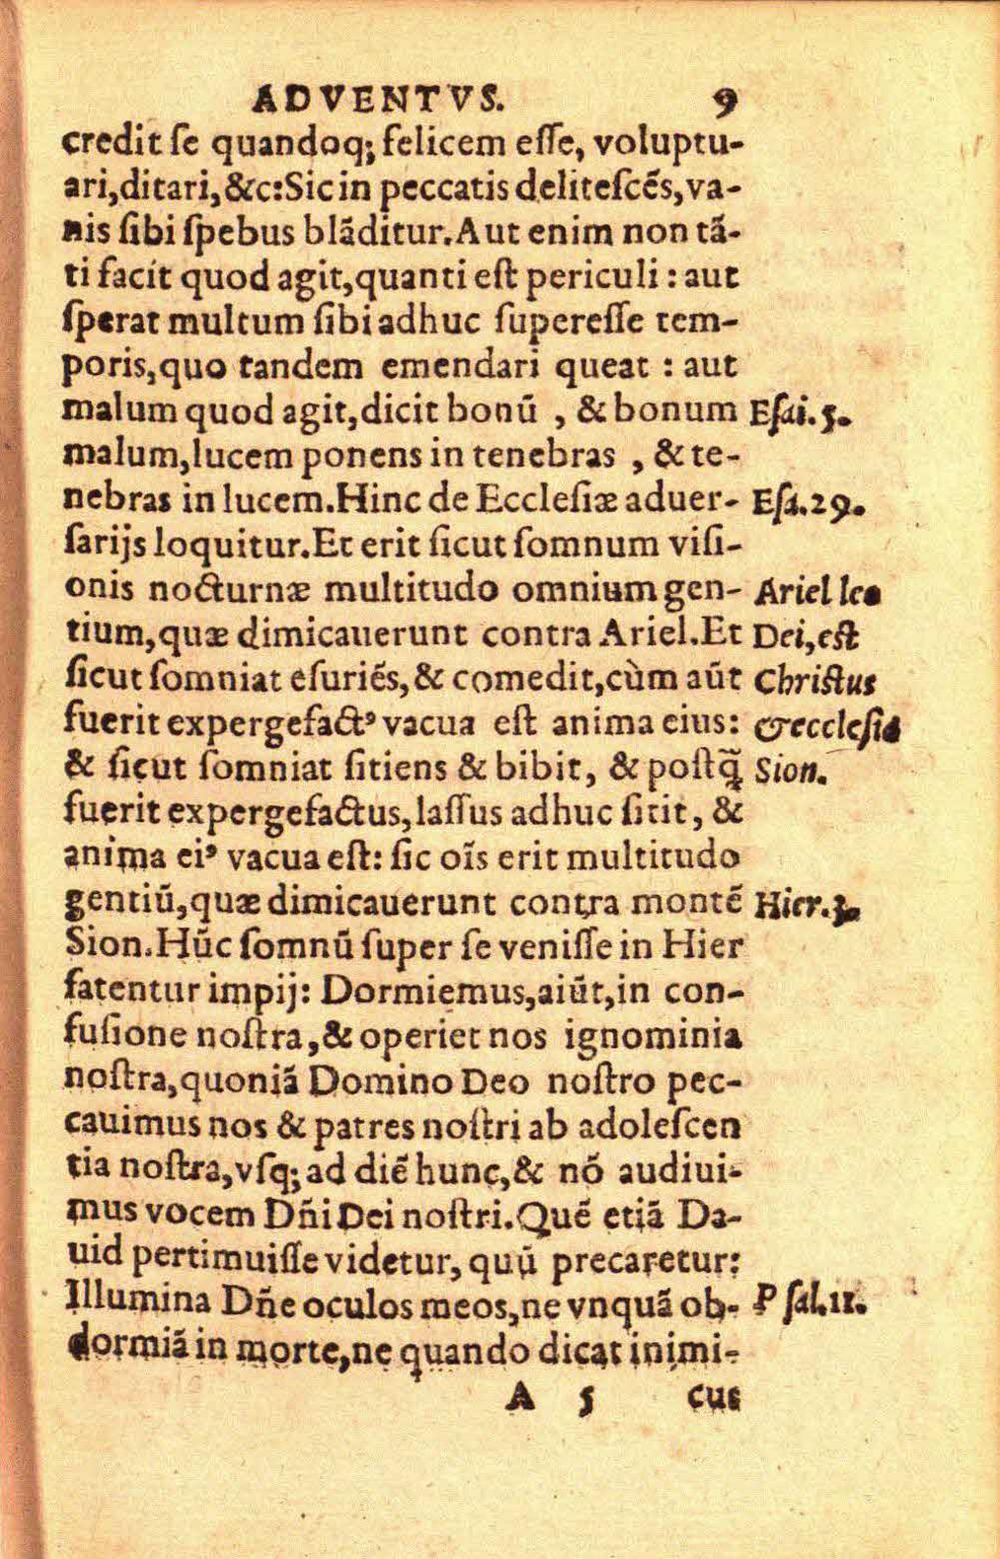 ADVENTVS. 9
credit ſe quandoq; felicem eſſe, voluptu-
ari,ditari,&c:Sic in peccatis deliteſcẽs,va-
nis ſibi ſpebus blãditur.Aut enim non tã-
ti facit quod agit,quanti eſt periculi : aut
ſperat multum ſibi adhuc ſupereſſe tem-
poris,quo tandem emendari queat : aut
malum quod agit,dicit bonũ , & bonum Eſai.5.
malum,lucem ponens in tenebras , & te-
nebras in lucem.Hinc de Eccleſiæ aduer- Eſa.29.
ſarijs loquitur.Et erit ſicut ſomnum viſi-
onis nocturnæ multitudo omnium gen- Ariel leo
tium,quæ dimicauerunt contra Ariel.Et Dei,eſt
ſicut ſomniat eſuriẽs,& comedit,cùm aũt Chriſtus
fuerit expergefactꝰ vacua eſt anima eius: & eccleſia
& ſicut ſomniat ſitiens & bibit, & poſtq̃ Sion.
fuerit expergefactus,laſſus adhuc ſitit, &
anima eiꝰ vacua eſt: ſic oĩs erit multitudo
gentiũ,quæ dimicauerunt contra montẽ Hier.3.
Sion.Hũc ſomnũ ſuper ſe veniſſe in Hier
fatentur impij: Dormiemus,aiũt,in con-
fuſione noſtra,& operiet nos ignominia
noſtra,quoniã Domino Deo noſtro pec-
cauimus nos & patres noſtri ab adoleſcen
tia noſtra,vſq; ad diẽ hunc,& nõ audiui-
mus vocem Dñi Dei noſtri.Quẽ etiã Da-
uid pertimuiſſe videtur, quũ precaretur:
Illumina Dñe oculos meos,ne vnquã ob- Pſal.12.
dormiã in morte,ne quando dicat inimi-
A 5 cus